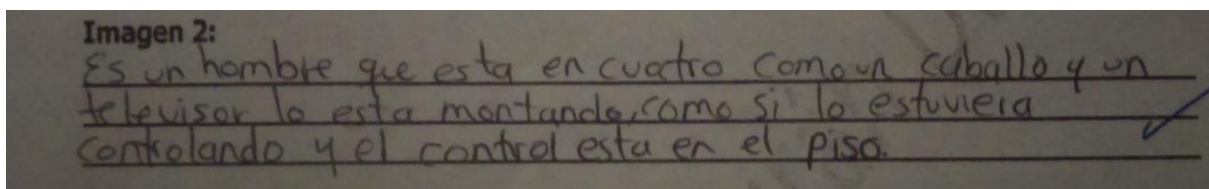 Imagen 2:
Es un hombre que esta en cuatro como un caballo y un
televisor lo esta montando, como si lo estuviera
controlando y el control esta en el piso.